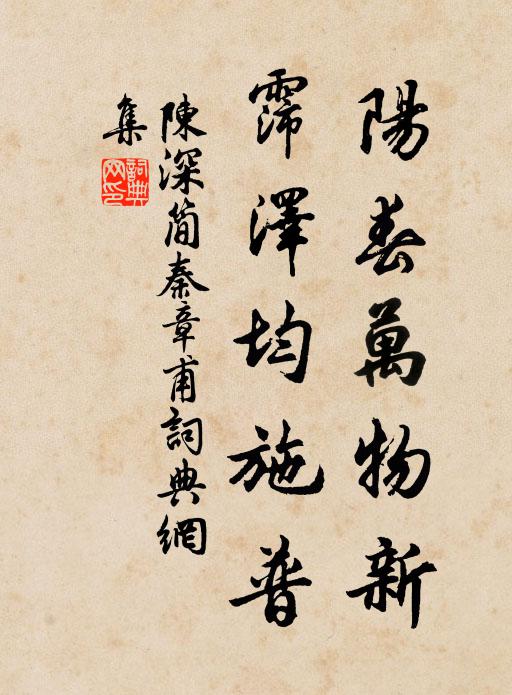 陽春萬物新
霈澤均施普
陳深簡秦章甫詞典網
集
詞典
網印